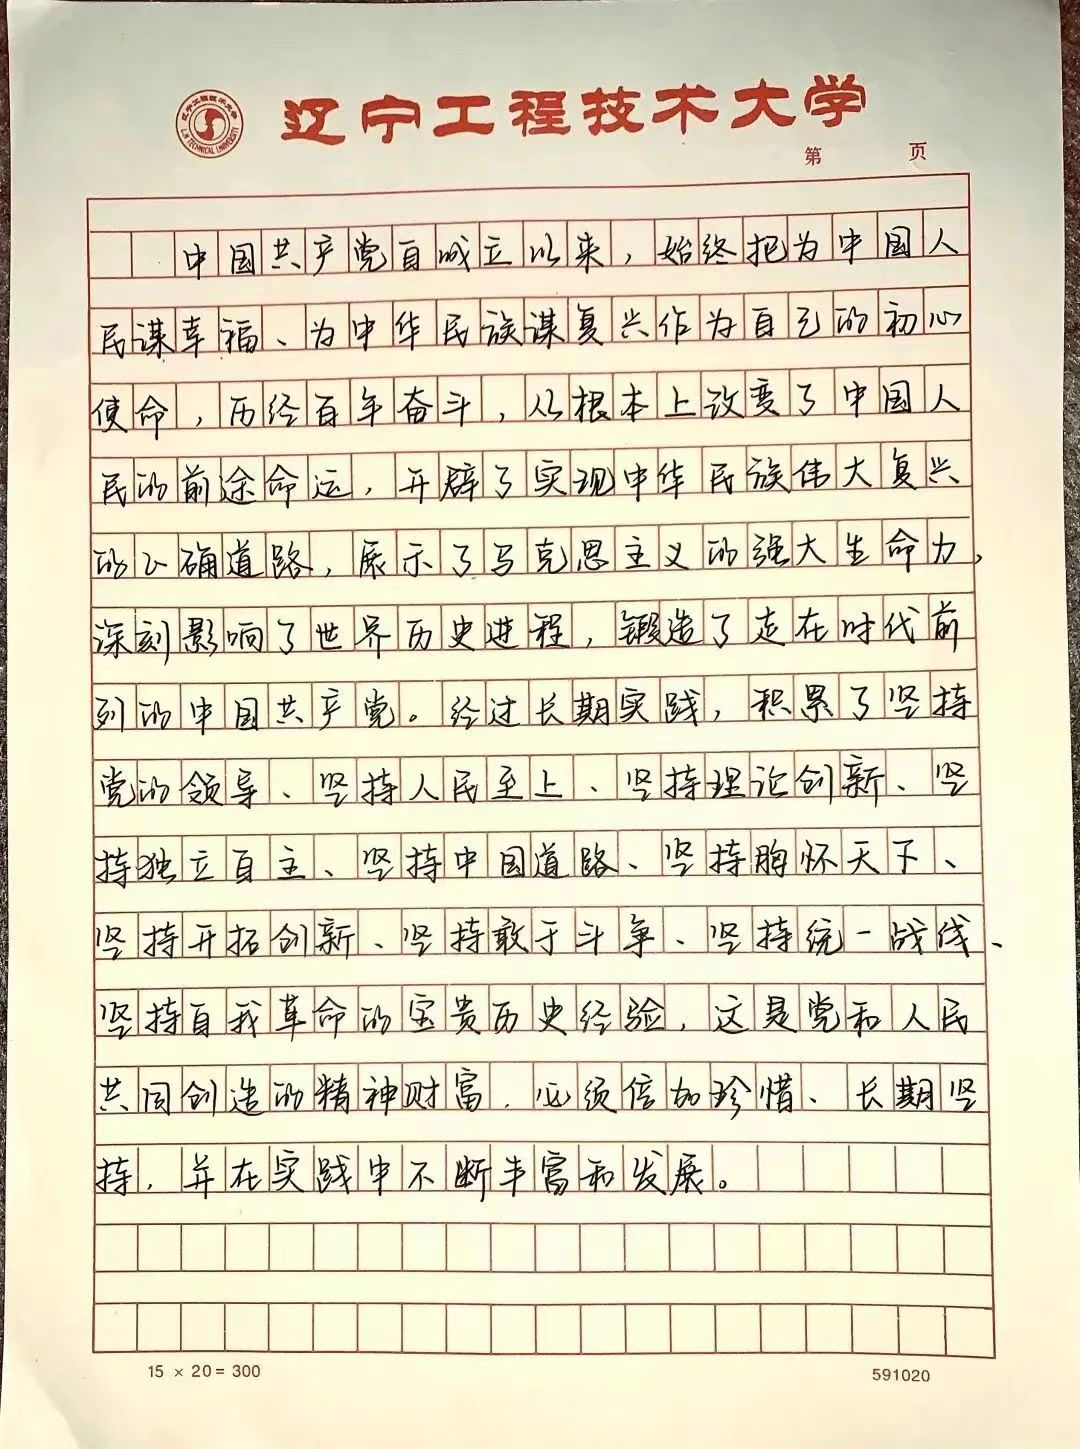 辽宁工程技术大学
第 页
中国共产党自成立以来，始终把为中国人
民谋幸福、为中华民族谋复兴作为自己的初心
使命，历经百年奋斗，从根本上改变了中国人
民的前途命运，开辟了实现中华民族伟大复兴
的正确道路，展示了马克思主义的强大生命力，
深刻影响了世界历史进程，锻造了走在时代前
列的中国共产党。经过长期实践，积累了坚持
党的领导、坚持人民至上、坚持理论创新、坚
持独立自主、坚持中国道路、坚持胸怀天下、
坚持开拓创新、坚持敢于斗争、坚持统一战线、
坚持自我革命的宝贵历史经验，这是党和人民
共同创造的精神财富，必须倍加珍惜、长期坚
持，并在实践中不断丰富和发展。
15 × 20 = 300
591020